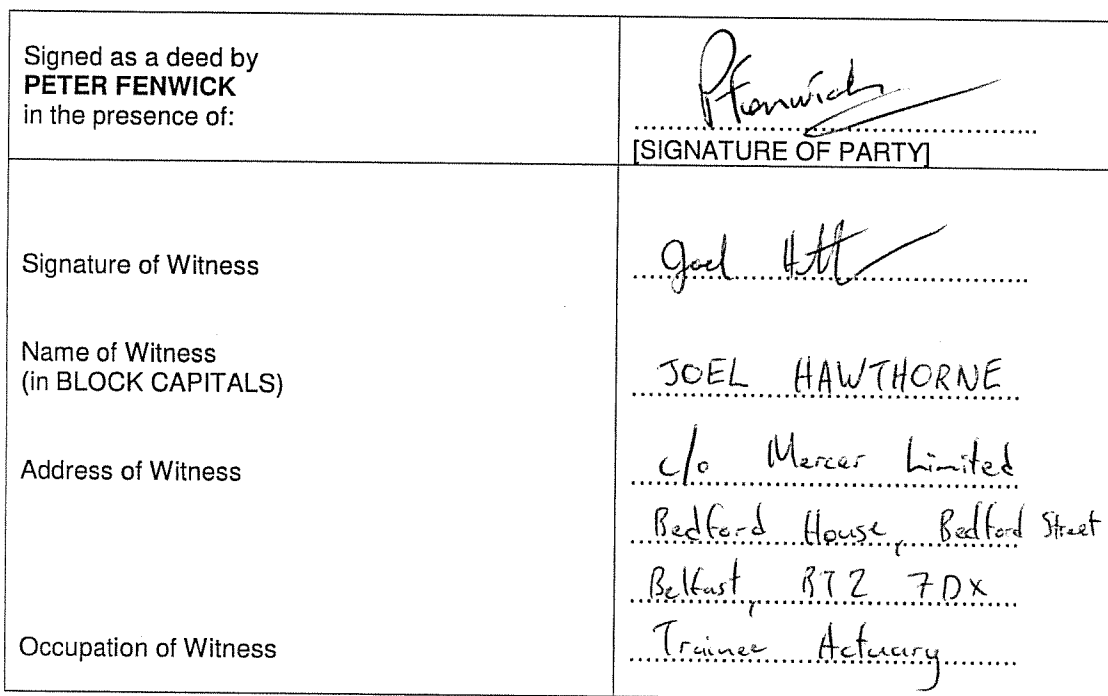 Signed as a deed by
PETER FENWICK
in the presence of:
PFenwick
[SIGNATURE OF PARTY]
Signature of Witness
Joel
Name of Witness
(in BLOCK CAPITALS)
JOEL HAWTHORNE
Address of Witness
c/o Mercer Limited
Bedford House, Bedford Street
Belfast, BT2 7DX
Occupation of Witness
Trainee Actuary